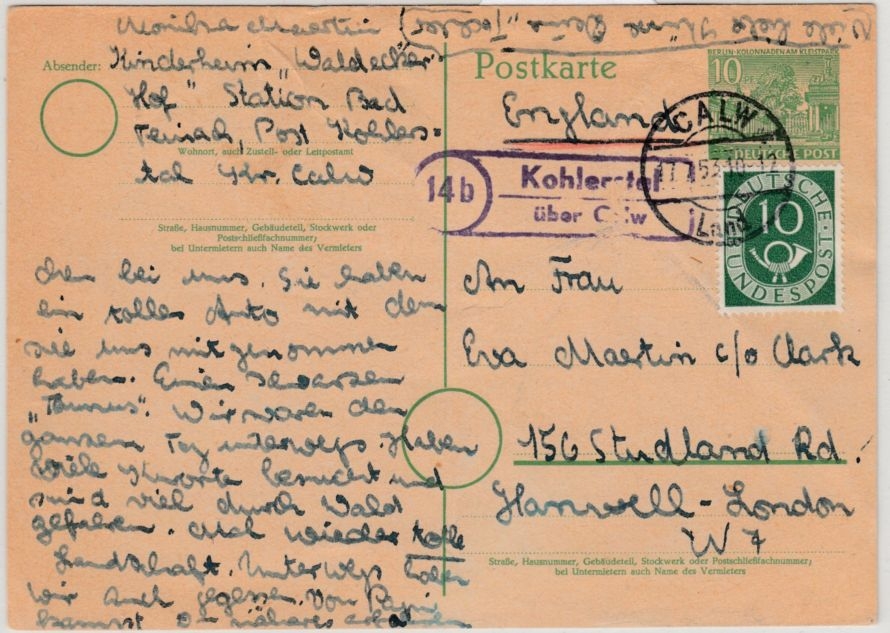 Monika Maertin
Absender: Kinderheim „Waldecker
Hof" Station Bad
Teinach, Post Kohlers=
Wohnort, auch Zustell- oder Leitpostamt
tal Kr. Calw
Straße, Hausnummer, Gebäudeteil, Stockwerk oder
Postschließfachnummer;
bei Untermietern auch Name des Vermieters
Viele liebe Küsse Deine „Tochter
chen bei uns. Sie haben
ein tolles Auto mit dem
sie uns mitgenommen
haben. Einen schwarzen
„Taunus". Wir waren den
ganzen Tag unterwegs. Haben
viele Kurorte besucht und
sind viel durch Wald
gefahren. Mal wieder tolle
Landschaft. Unterwegs haben
wir auch gegessen. Von
kannst Du näheres erfahren
Postkarte
BERLIN-KOLONNADEN AM KLEISTPARK
10 PF
DEUTSCHE POST
England
CALW
53.10-12
Land
14b
Kohlerstal
über Calw
DEUTSCHE
10
BUNDESPOST
An Frau
Eva Maertin c/o Clark
156 Studland Rd.
Hanwell-London
W 7
Straße, Hausnummer, Gebäudeteil, Stockwerk oder Postschließfachnummer;
bei Untermietern auch Name des Vermieters